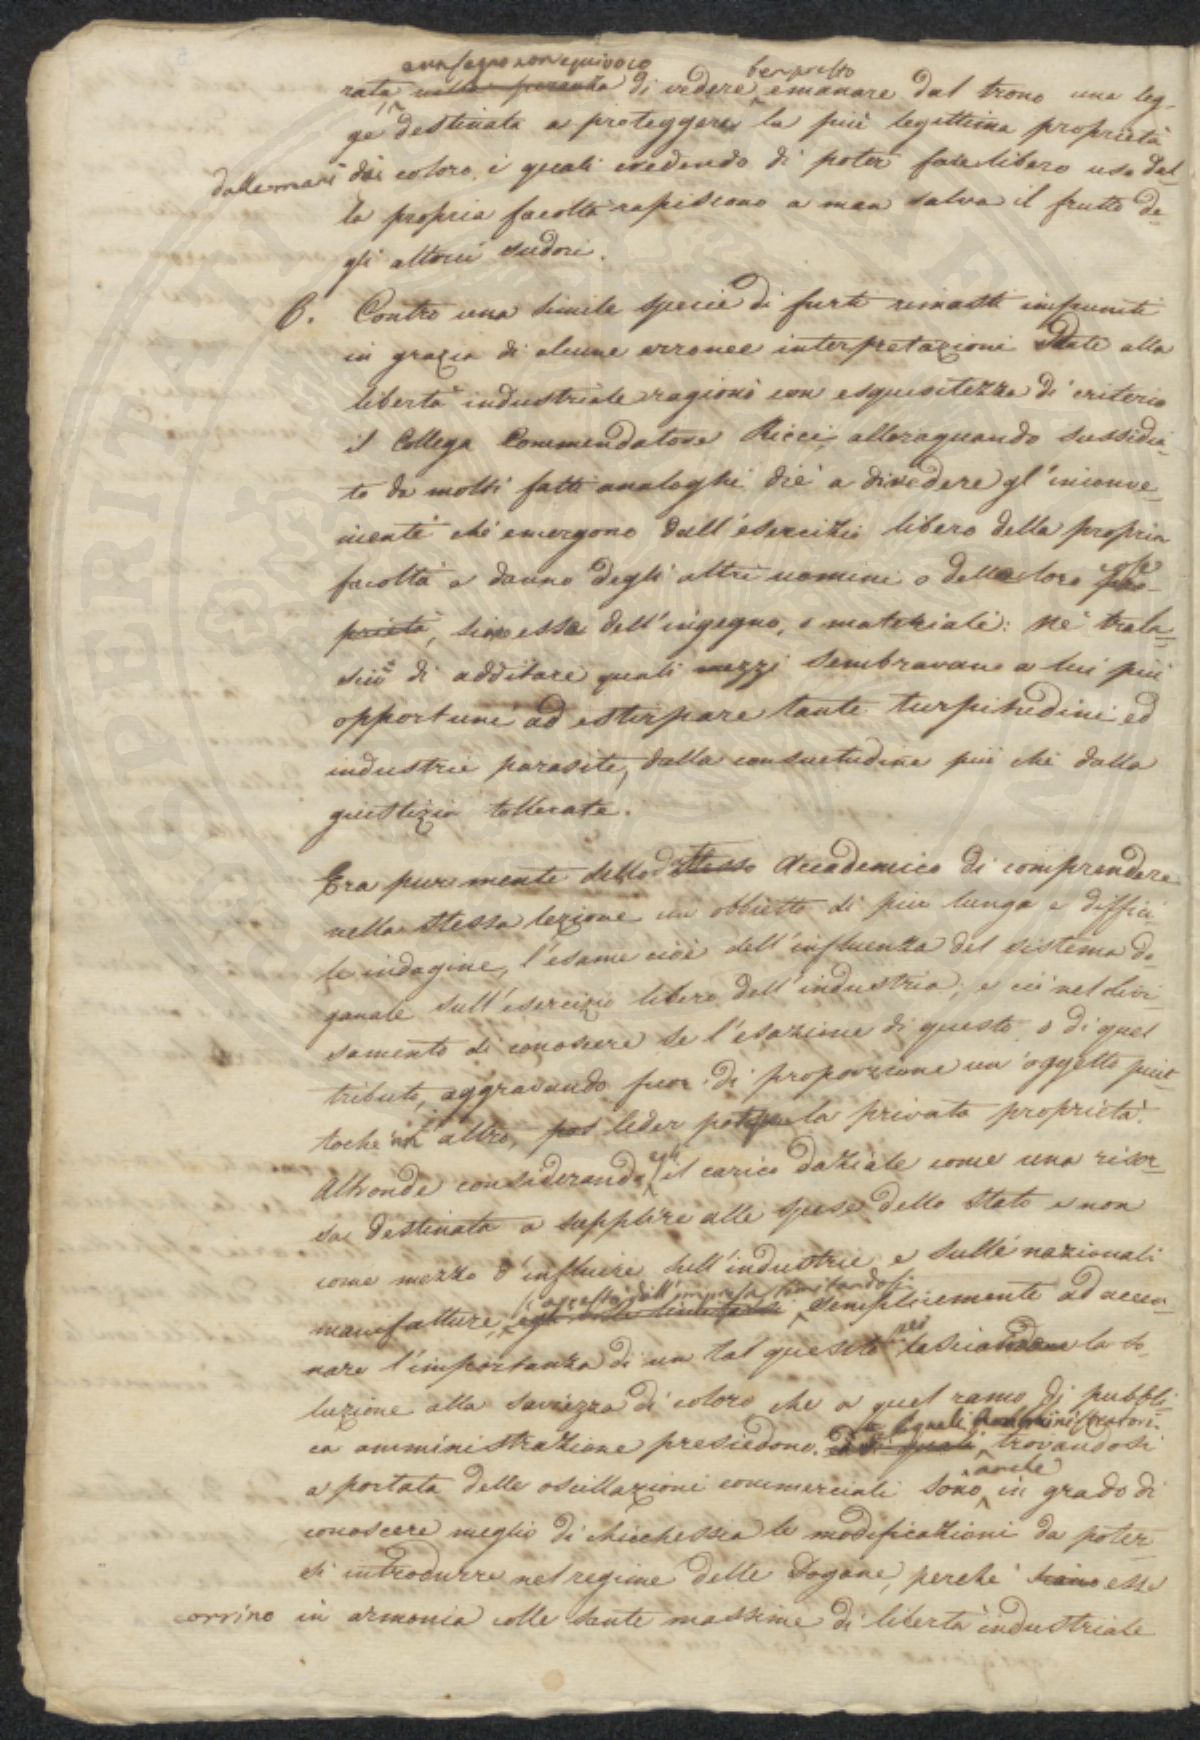 segno non equivoco ben presto
rata nella speranza di vedere emanare dal trono una leg-
ge destinata a proteggere la più legittima proprietà
dalle mani di coloro, i quali credendo di poter fare libero uso del-
la propria facoltà rapiscono a man salva il frutto de-
gli altrui sudori.
6. Contro una simile specie di furti rimasti impuniti
in grazia di alcune erronee interpretazioni date alla
libertà industriale ragionò con esquisitezza di criterio
il Collega Commendatore Ricci, alloraquando sussidia-
to da molti fatti analoghi diè a divedere gl'inconve-
nienti che emergono dall'esercizio libero della propria
facoltà a danno degli altri uomini o delle loro cose pro-
prietà, sieno esse dell'ingegno, o materiali: nè trala-
sciò di additare quali mezzi sembravano a lui più
opportuni ad estirpare tante turpitudini ed
industrie parasite, dalla consuetudine più che dalla
giustizia tollerate.
Era pur mente dello stesso Accademico di comprendere
nella stessa lezione un obbietto di più lunga e diffici-
le indagine, l'esame cioè dell'influenza del sistema do-
ganale sull'esercizio libero dell'industria; e ciò nel divi-
samento di conoscere se l'esazione di questo o di quel
tributo, aggravando fuor di proporzione un oggetto piut-
tochè altro, leder la privata proprietà.
Altronde considerando egli il carico daziale come una risor-
sa destinata a supplire alle spese dello Stato e non
come mezzo d'influire sull'industrie e sulle nazionali
si arrestò dall'impresa limitandosi
manifatture, semplicemente ad accen-
nare l'importanza di un tal quesito lasciandone la so-
luzione alla saviezza di coloro che a quel ramo di pubbli-
i quali Amministratori
ca amministrazione presiedono. ed i quali, trovandosi
anche
a portata delle oscillazioni commerciali sono in grado di
conoscere meglio di chicchessia le modificazioni da poter-
si introdurre nel regime delle Dogane, perchè siano esse
corrino in armonia colle sante massime di libertà industriale